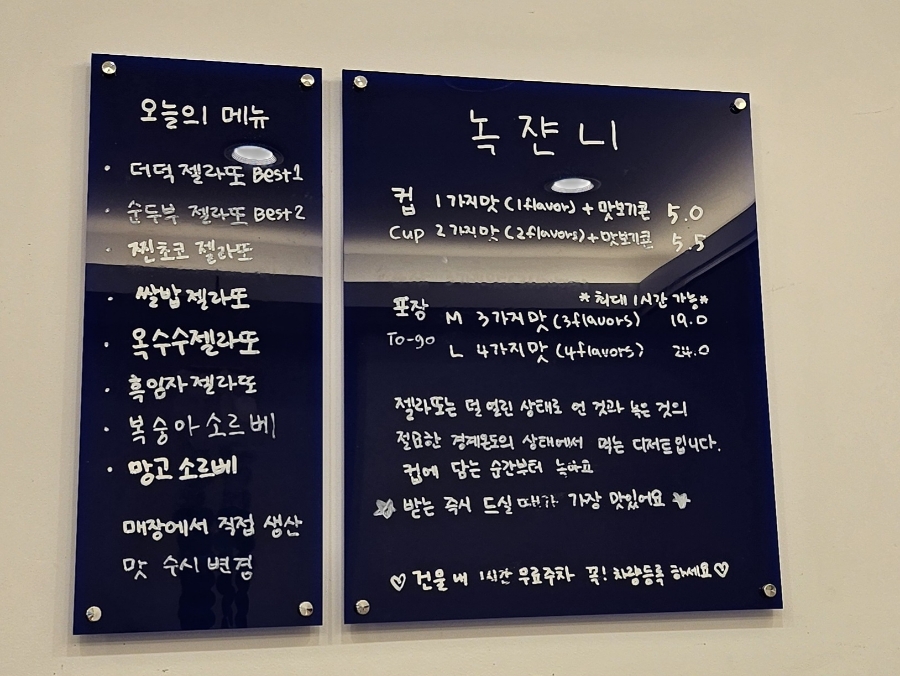 오늘의 메뉴
· 더덕 젤라또 Best1
· 순두부 젤라또 Best2
· 찐초코 젤라또
· 쌀밥 젤라또
· 옥수수젤라또
· 흑임자 젤라또
· 복숭아 소르베
· 망고 소르베
매장에서 직접 생산
맛 수시 변경
녹쟌니
컵 1가지맛 (1flavor) + 맛보기콘 5.0
Cup 2가지맛 (2flavors) + 맛보기콘 5.5
*최대 1시간 가능*
포장 M 3가지맛 (3flavors) 19.0
To-go L 4가지맛 (4flavors) 24.0
젤라또는 덜 얼린 상태로 언 것과 녹은 것의
절묘한 경계온도의 상태에서 먹는 디저트입니다.
컵에 담는 순간부터 녹아요
☆ 받는 즉시 드실 때가 가장 맛있어요 ☆
♡ 건물 내 1시간 무료주차 꼭! 차량등록 하세요 ♡